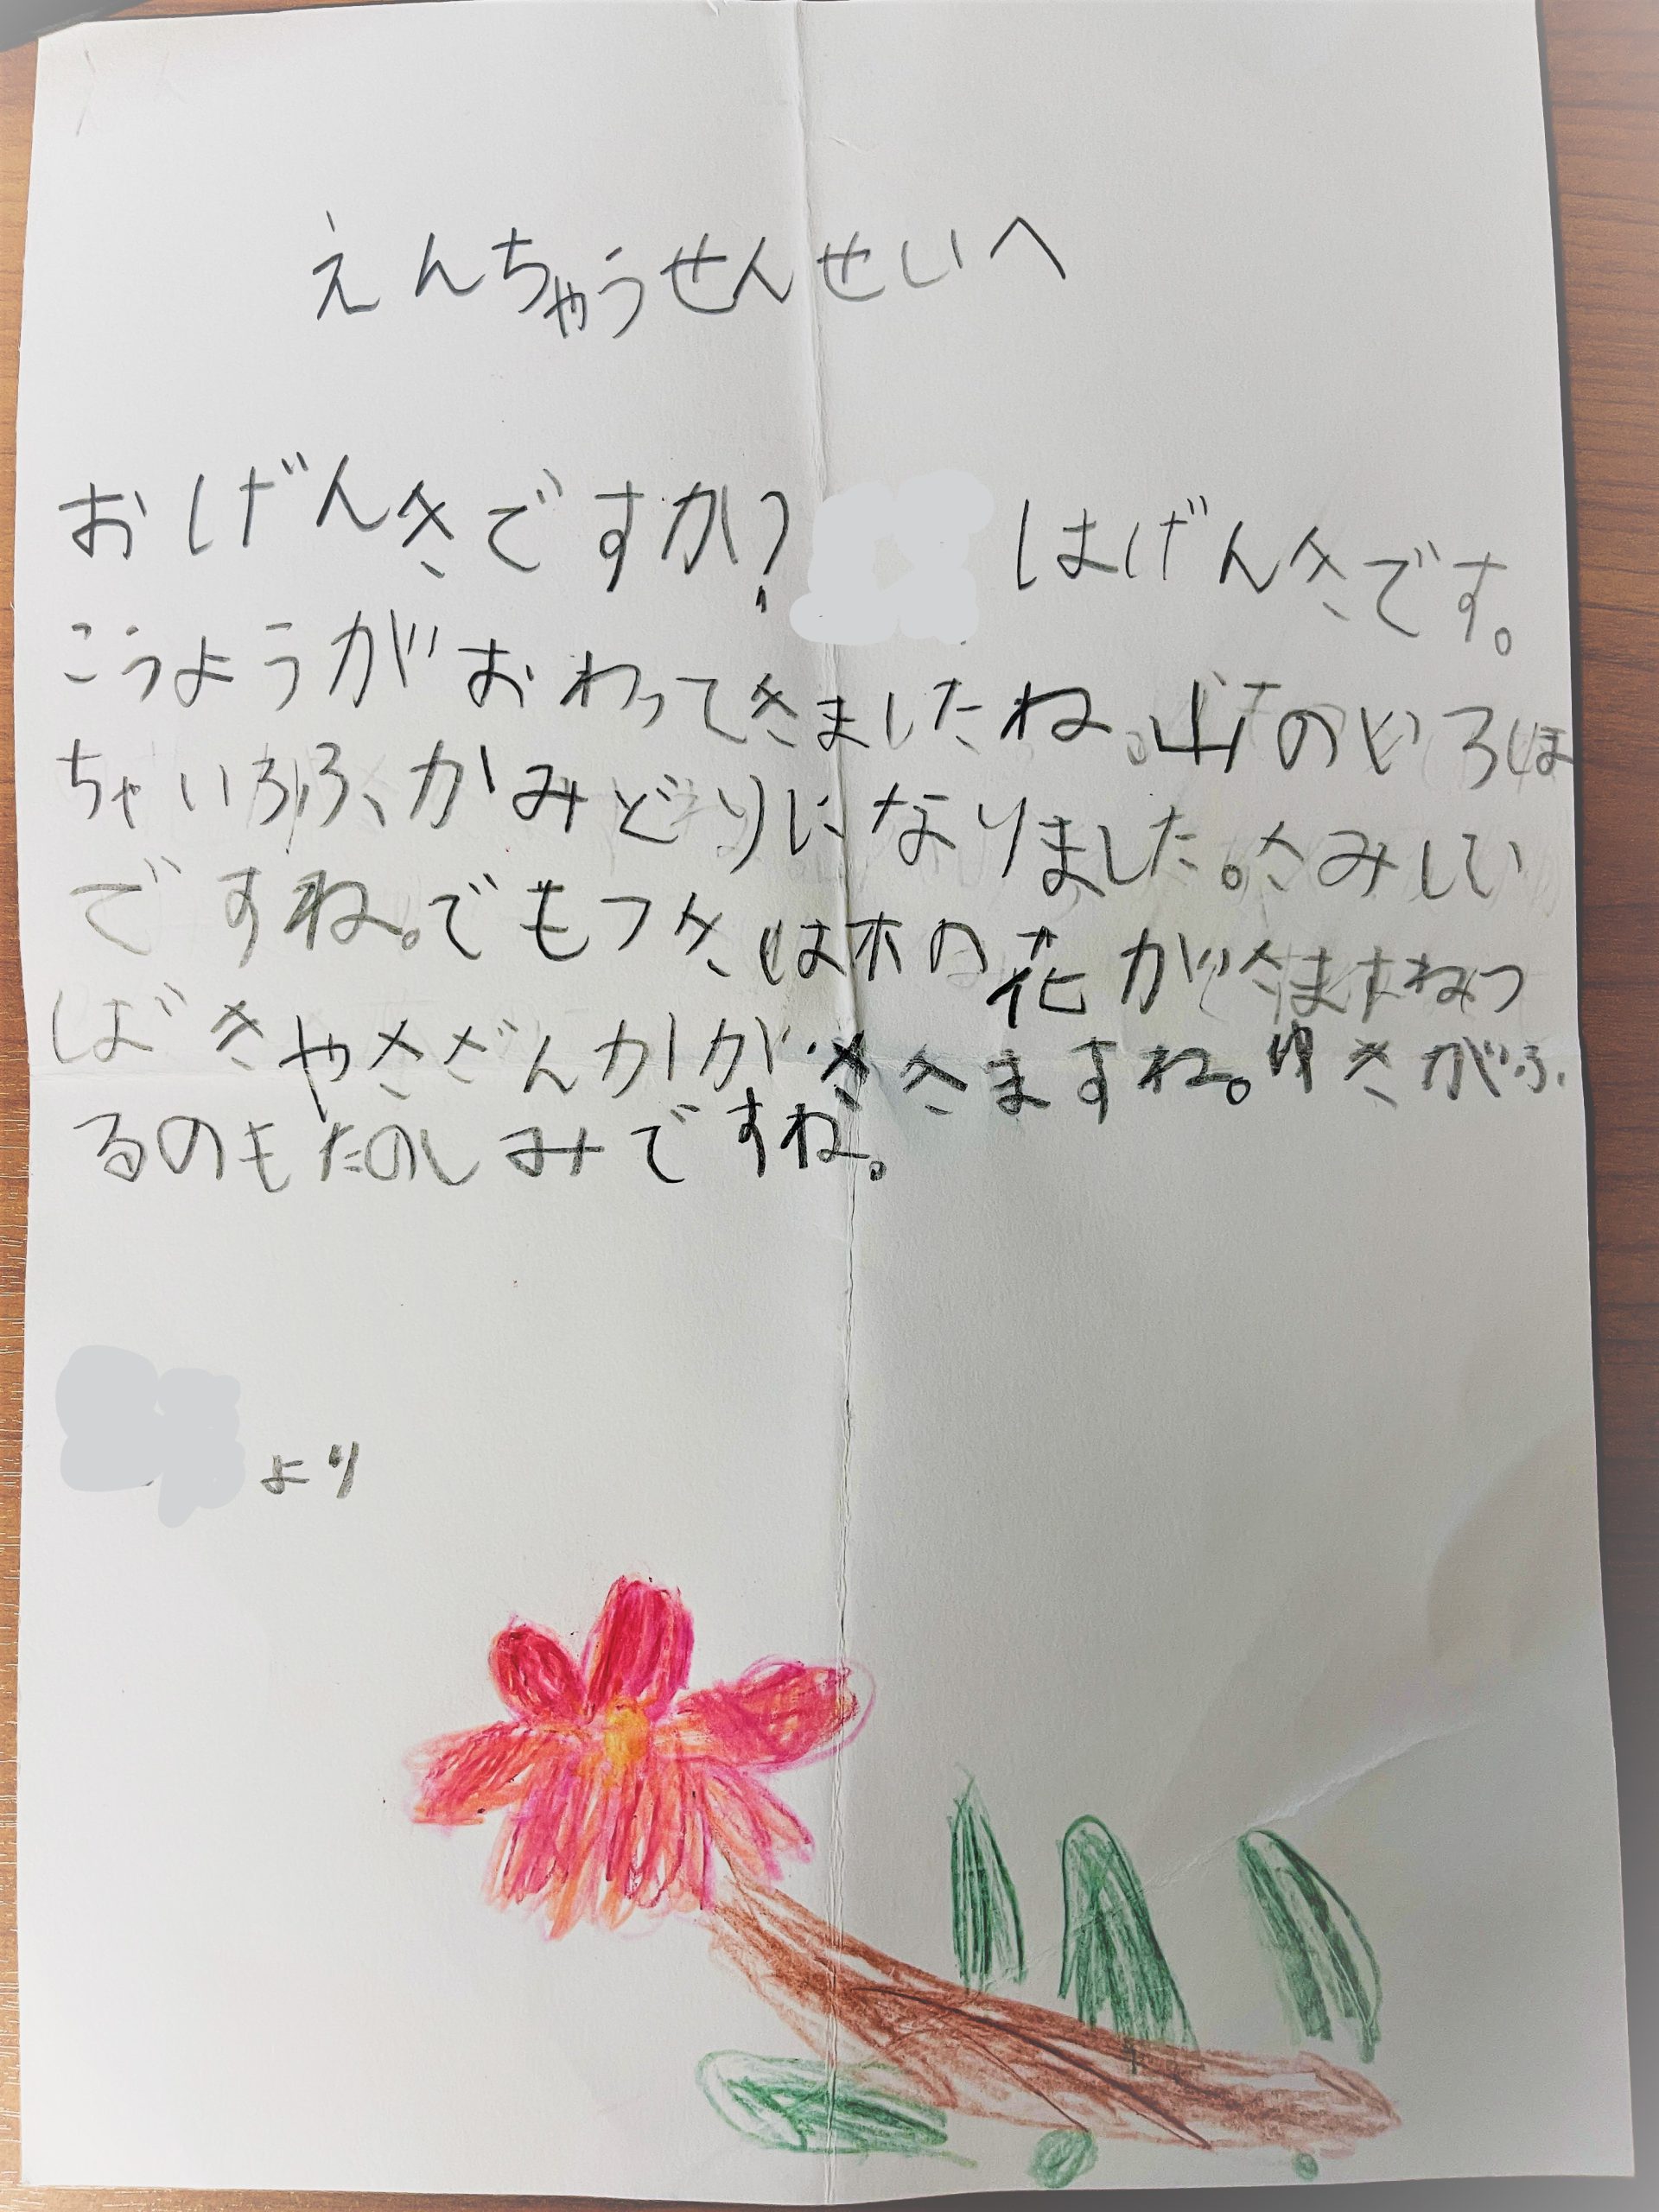 えんちゃうせんせいへ
おげんきですか? はげんきです。
こうようがおわってきましたね。山のいろは
ちゃいろ、ふかみどりになりました。さみしい
ですね。でもつきは木の花がさきますねつ
ばきやさざんかがさきますね。ゆきがふ
るのもたのしみですね。
より